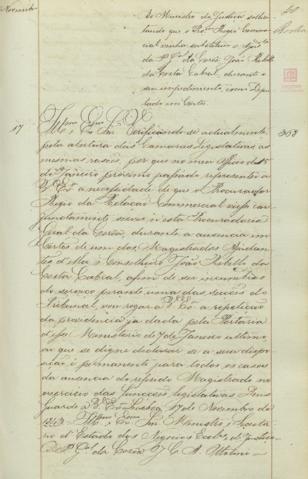 Novembro
Ao Ministro da Justiça solici-
tando que o Pror. Regio Commer-
cial venha substituir o Ajudte.
do Pr. Gl. da Corôa João Rebello
da Costa Cabral, durante o
seu impedimento, como Depu-
tado em Cortes.
17
363
Illmo. e Exmo. Sr. Verificando-se actualmente
pela abertura das Camaras Legislativas as
mesmas rasões, por que no meu officio de 15
de Janeiro proximo passado representei a
V. Exa. a necessidade de que o Procurador
Regio da Relação Commercial viesse
servir n'esta Procuradoria
Geral da Corôa, durante a ausencia em
Cortes de um dos Magistrados Ajudan-
tes d'ella o Conselheiro João Rebello da
Costa Cabral, afim de ser incumbido
do serviço
Tribunal, vou rogar a V. Exa. a repetição
da providencia já dada pela Portaria
d'esse Ministerio de 7 de Janeiro ultimo
ao que se digne declarar se a sua dispo-
sição é permanente para todos os casos
da ausencia do referido Magistrado no
exercicio das funcções legislativas. Deus
Guarde a V. Exa. Lisboa 17 de Novembro de
Illmo. e Exmo. Sr. Ministro e Secreta-
rio d'Estado dos Negocios Eccles. e de Justiça
O Pr. Gl. da Corôa J. C. A. Ottolini